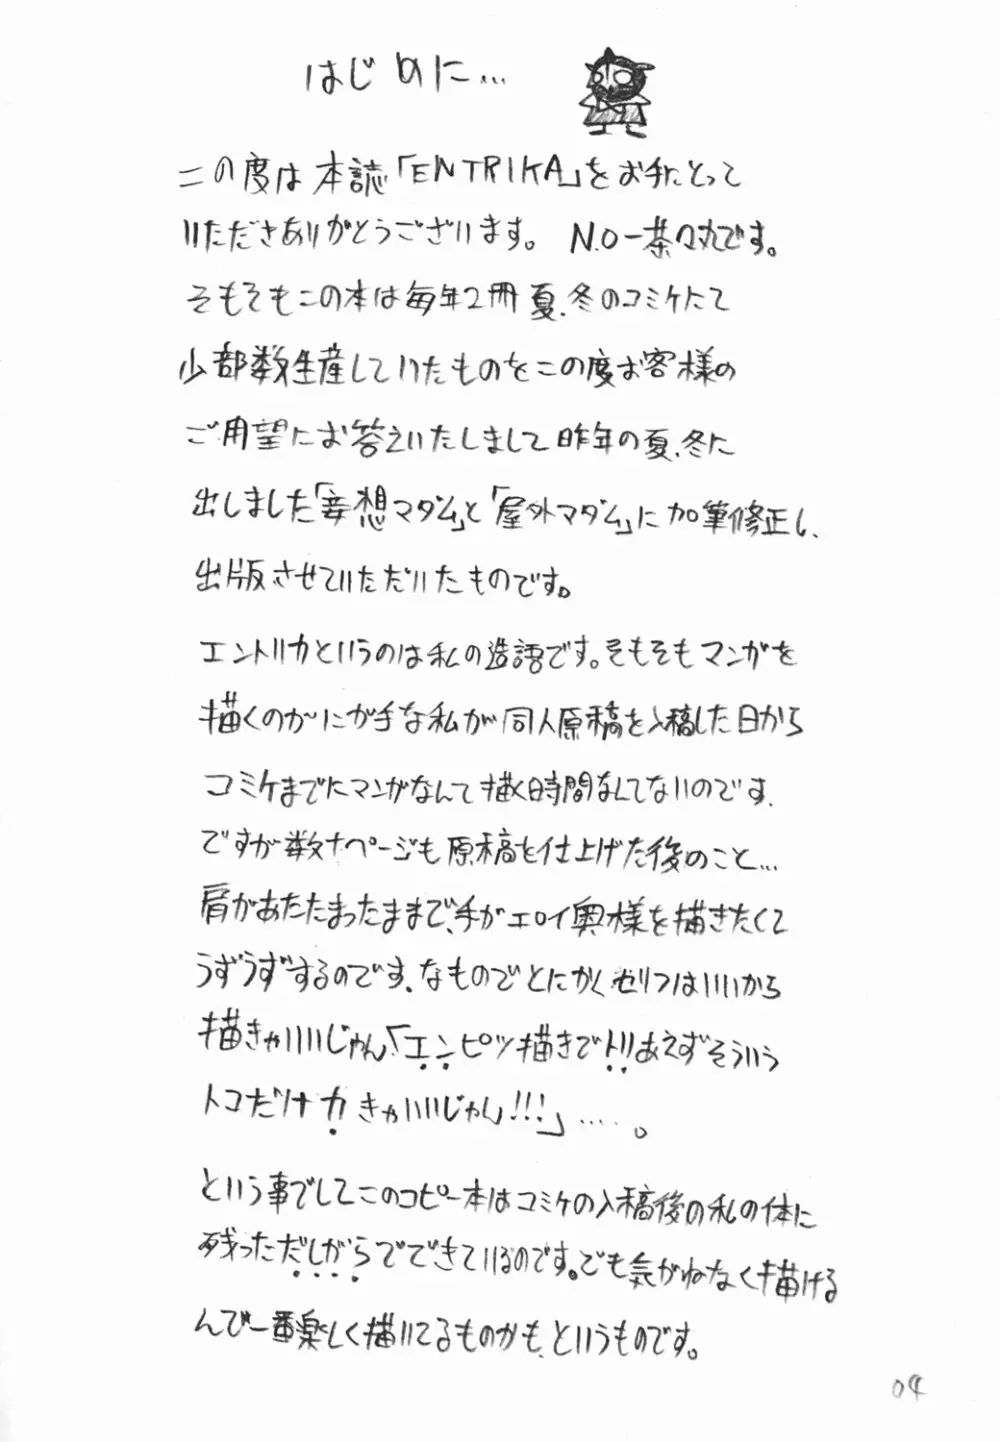 はじめに…
この度は本誌「ENTRIKA」をお手にとって
いただきありがとうございます。 N.O-茶々丸です。
そもそもこの本は毎年2冊夏、冬のコミケにて
少部数生産していたものをこの度お客様の
ご用望にお答えいたしまして昨年の夏、冬に
出しました「妄想マダム」と「屋外マダム」に加筆修正し、
出版させていただいたものです。
エントリカというのは私の造語です。そもそもマンガを
描くのがにが手な私が同人原稿を入稿した日から
コミケまでにマンガなんて描く時間なんてないのです、
ですが数十ページも原稿を仕上げた後のこと…
肩があたたまったままで、手がエロイ奥様を描きたくて
うずうずするのです、なものでとにかくセリフはいいから
描きゃいいじゃん「エンピツ描きでトリあえずそういう
トコだけカきゃいいじゃん!!!」……。
という事でしてこのコピー本はコミケの入稿後の私の体に
残っただしがらでできているのです。でも気がねなく描ける
んで一番楽しく描いてるものかも、というものです。
04